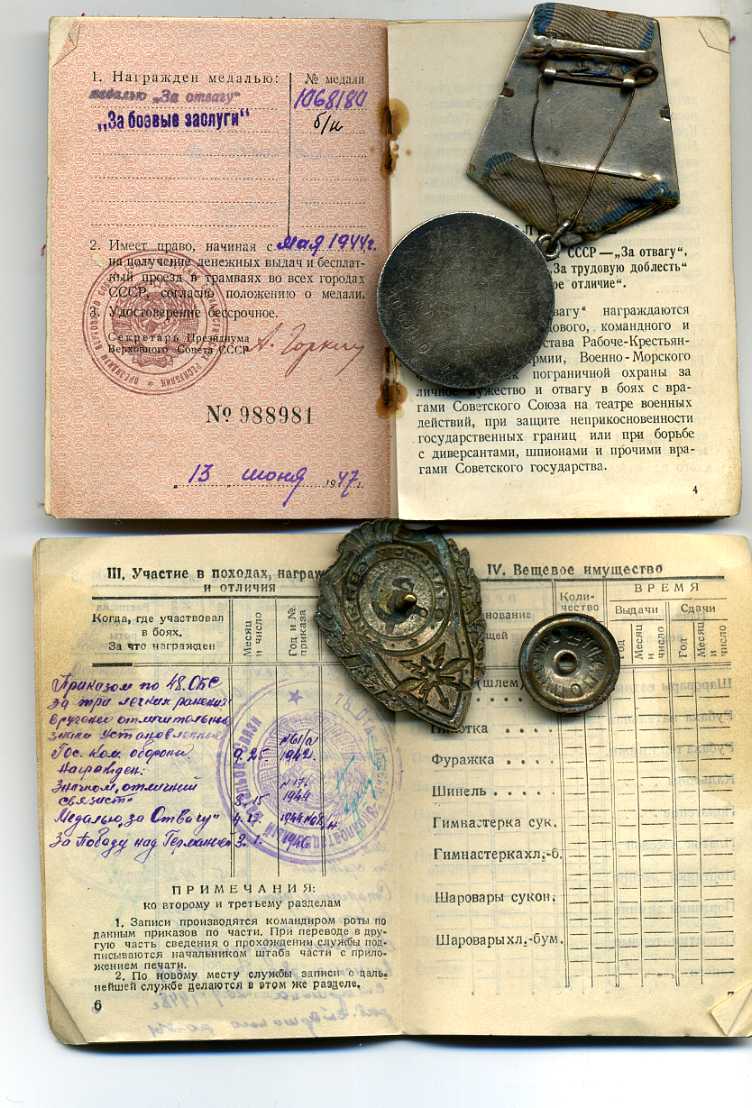 1. Награжден медалью:
№ медали
медалью „За отвагу"
1068180
„За боевые заслуги"
б/н
2. Имеет право, начиная с мая 1944г.
на получение денежных выдач и бесплат-
ный проезд в трамваях во всех городах
СССР, согласно положению о медали.
3. Удостоверение бессрочное.
Секретарь Президиума
Верховного Совета СССР
А. Горкин
№ 988981
„ 13 июня 1947г.
СССР—„За отвагу",
„За трудовую доблесть"
ое отличие".
вагу" награждаются
дового, командного и
става Рабоче-Крестьян-
рмии, Военно-Морского
пограничной охраны за
личное мужество и отвагу в боях с вра-
гами Советского Союза на театре военных
действий, при защите неприкосновенности
государственных границ или при борьбе
с диверсантами, шпионами и прочими вра-
гами Советского государства.
4
III. Участие в походах, награ
и отличия
Когда, где участвовал
в боях.
За что награжден
Месяц
и число
Год и №
приказа
Приказом по 48.ОБС
за три легких ранения
вручены отличительные
знаки установленные
Гос. Ком. обороны
9.25.
1942.
Награжден:
Значком „отличный
связист"
3.15
1944
Медалью „за Отвагу"
4.17
1944
За Победу над Германией
2.1.
1946
ПРИМЕЧАНИЯ:
ко второму и третьему разделам
1. Записи производятся командиром роты по
данным приказов по части. При переводе в дру-
гую часть сведения о прохождении службы под-
писываются начальником штаба части с прило-
жением печати.
2. По новому месту службы записи о даль-
нейшей службе делаются в этом же разделе.
6
IV. Вещевое имущество
нование
щей
Коли-
чество
ВРЕМЯ
Выдачи
Сдачи
Год
Месяц
и число
Год
Месяц
и число
(шлем)
Пилотка
Фуражка
Шинель
Гимнастерка сук.
Гимнастерка хл.-б.
Шаровары сукон.
Шаровары хл.-бум.
7